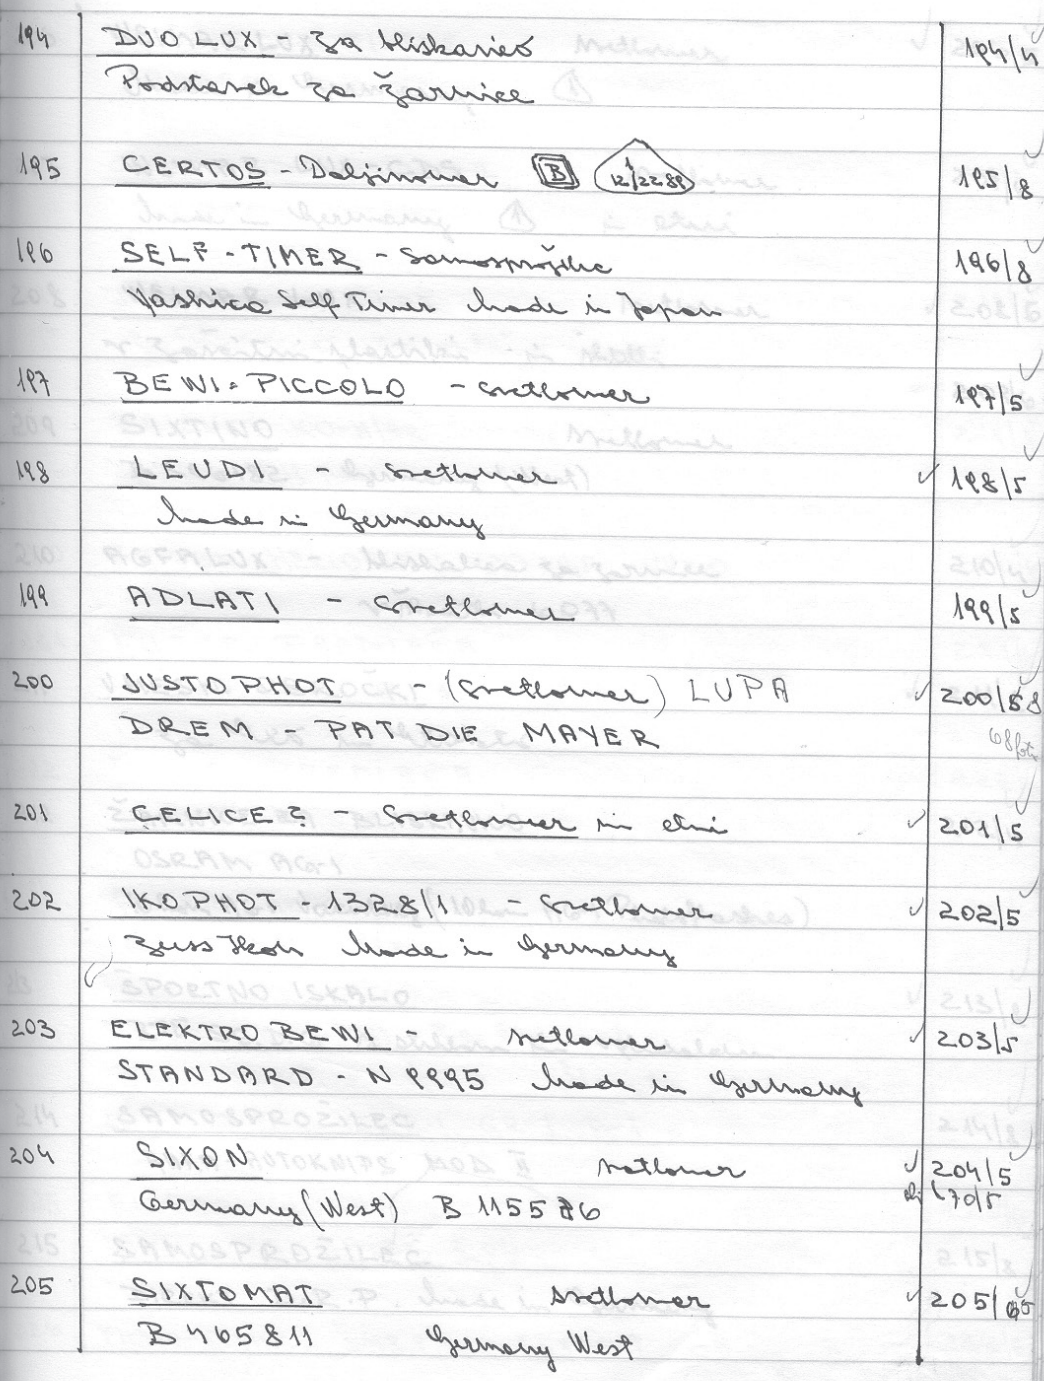 194 DUO LUX - za bliskavico 194/4
Podstavek za žarnice
195 CERTOS - Daljinomer B 1 12/2288 195/8
196 SELF-TIMER - Samosprožilec 196/8
Yashica Self Timer Made in Japan
197 BEWI-PICCOLO - svetlomer 197/5
198 LEUDI - svetlomer ✓ 198/5
Made in Germany
199 ADLATI - svetlomer 199/5
200 JUSTOPHOT - (svetlomer) LUPA ✓ 200/8
DREM - PAT DIE MAYER 68
201 CELICE? - Svetlomer in etui ✓ 201/5
202 IKOPHOT - 1328/1 - Svetlomer ✓ 202/5
Zeiss Ikon Made in Germany
203 ELEKTRO BEWI - svetlomer ✓ 203/5
STANDARD - N 9995 Made in Germany
204 SIXON svetlomer ✓ 204/5
Germany (West) B 1155 76 70/5
205 SIXTOMAT svetlomer ✓ 205/5
B 465811 Germany West